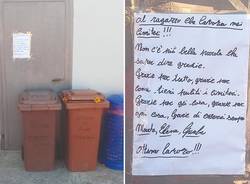 al ragazzo che lavora nei
Cimiteri !!!
Non c'è più bella parola che
saper dire grazie.
Grazie per tutto, grazie per
come tieni puliti i cimiteri.
Grazie per gli cura, grazie per
ogni cosa, Grazie di esserci sempre
Ottimo Lavoro!!!